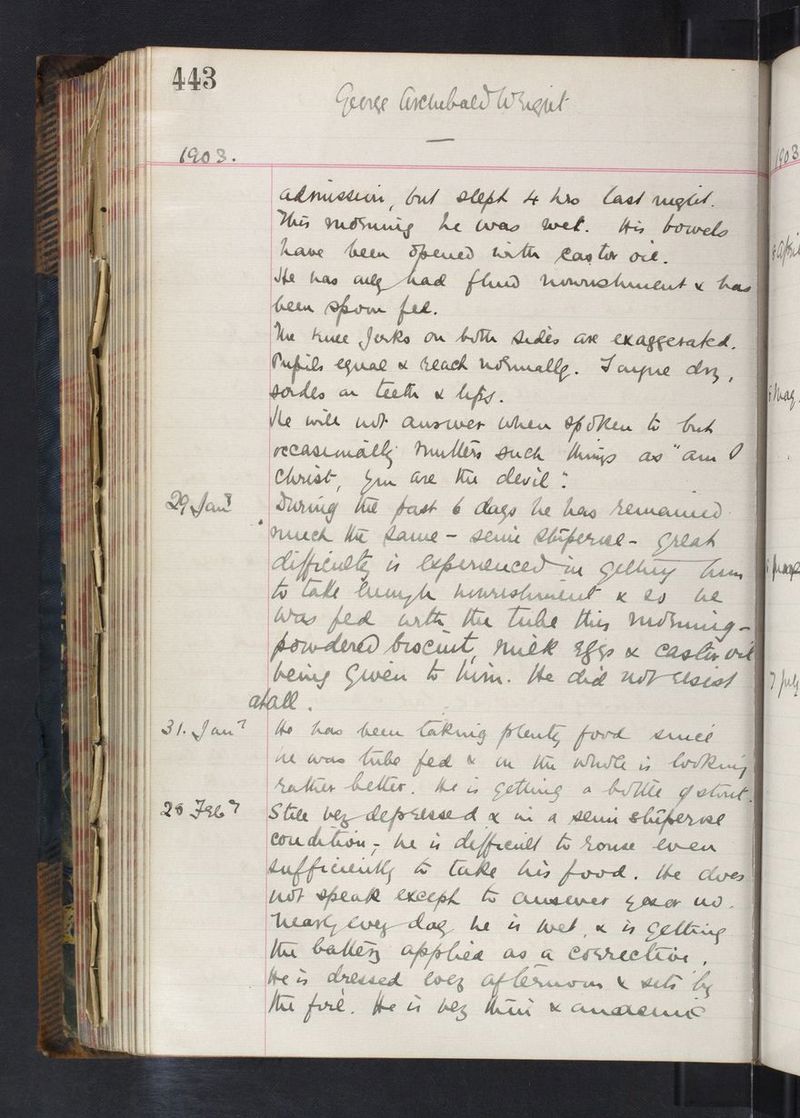 443
George Archibald Wright
1903.
admission, but slept 4 hrs last night.
This morning he was wet. His bowels
have been opened with castor oil.
He has only had fluid nourishment & has
been spoon fed.
The knee jerks on both sides are exaggerated.
Pupils equal & react normally. Tongue dry,
sordes on teeth & lips.
He will not answer when spoken to but
occasionally mutters such things as "am I
Christ, you are the devil".
29 Jany During the past 6 days he has remained
much the same - semi stuperose - great
difficulty is experienced in getting him
to take enough nourishment & so he
was fed with the tube this morning -
powdered biscuit, milk eggs & castor oil
being given to him. He did not resist
at all.
31. Jany He has been taking plenty food since
he was tube fed & on the whole is looking
rather better. He is getting a bottle of stout.
28 Feby Still very depressed & in a semi stuperose
condition, - he is difficult to rouse even
sufficiently to take his food. He does
not speak except to answer yes or no.
Nearly every day he is wet, & is getting
the battery applied as a corrective.
He is dressed every afternoon & sits by
the fire. He is very thin & anaemic
1903
7 July